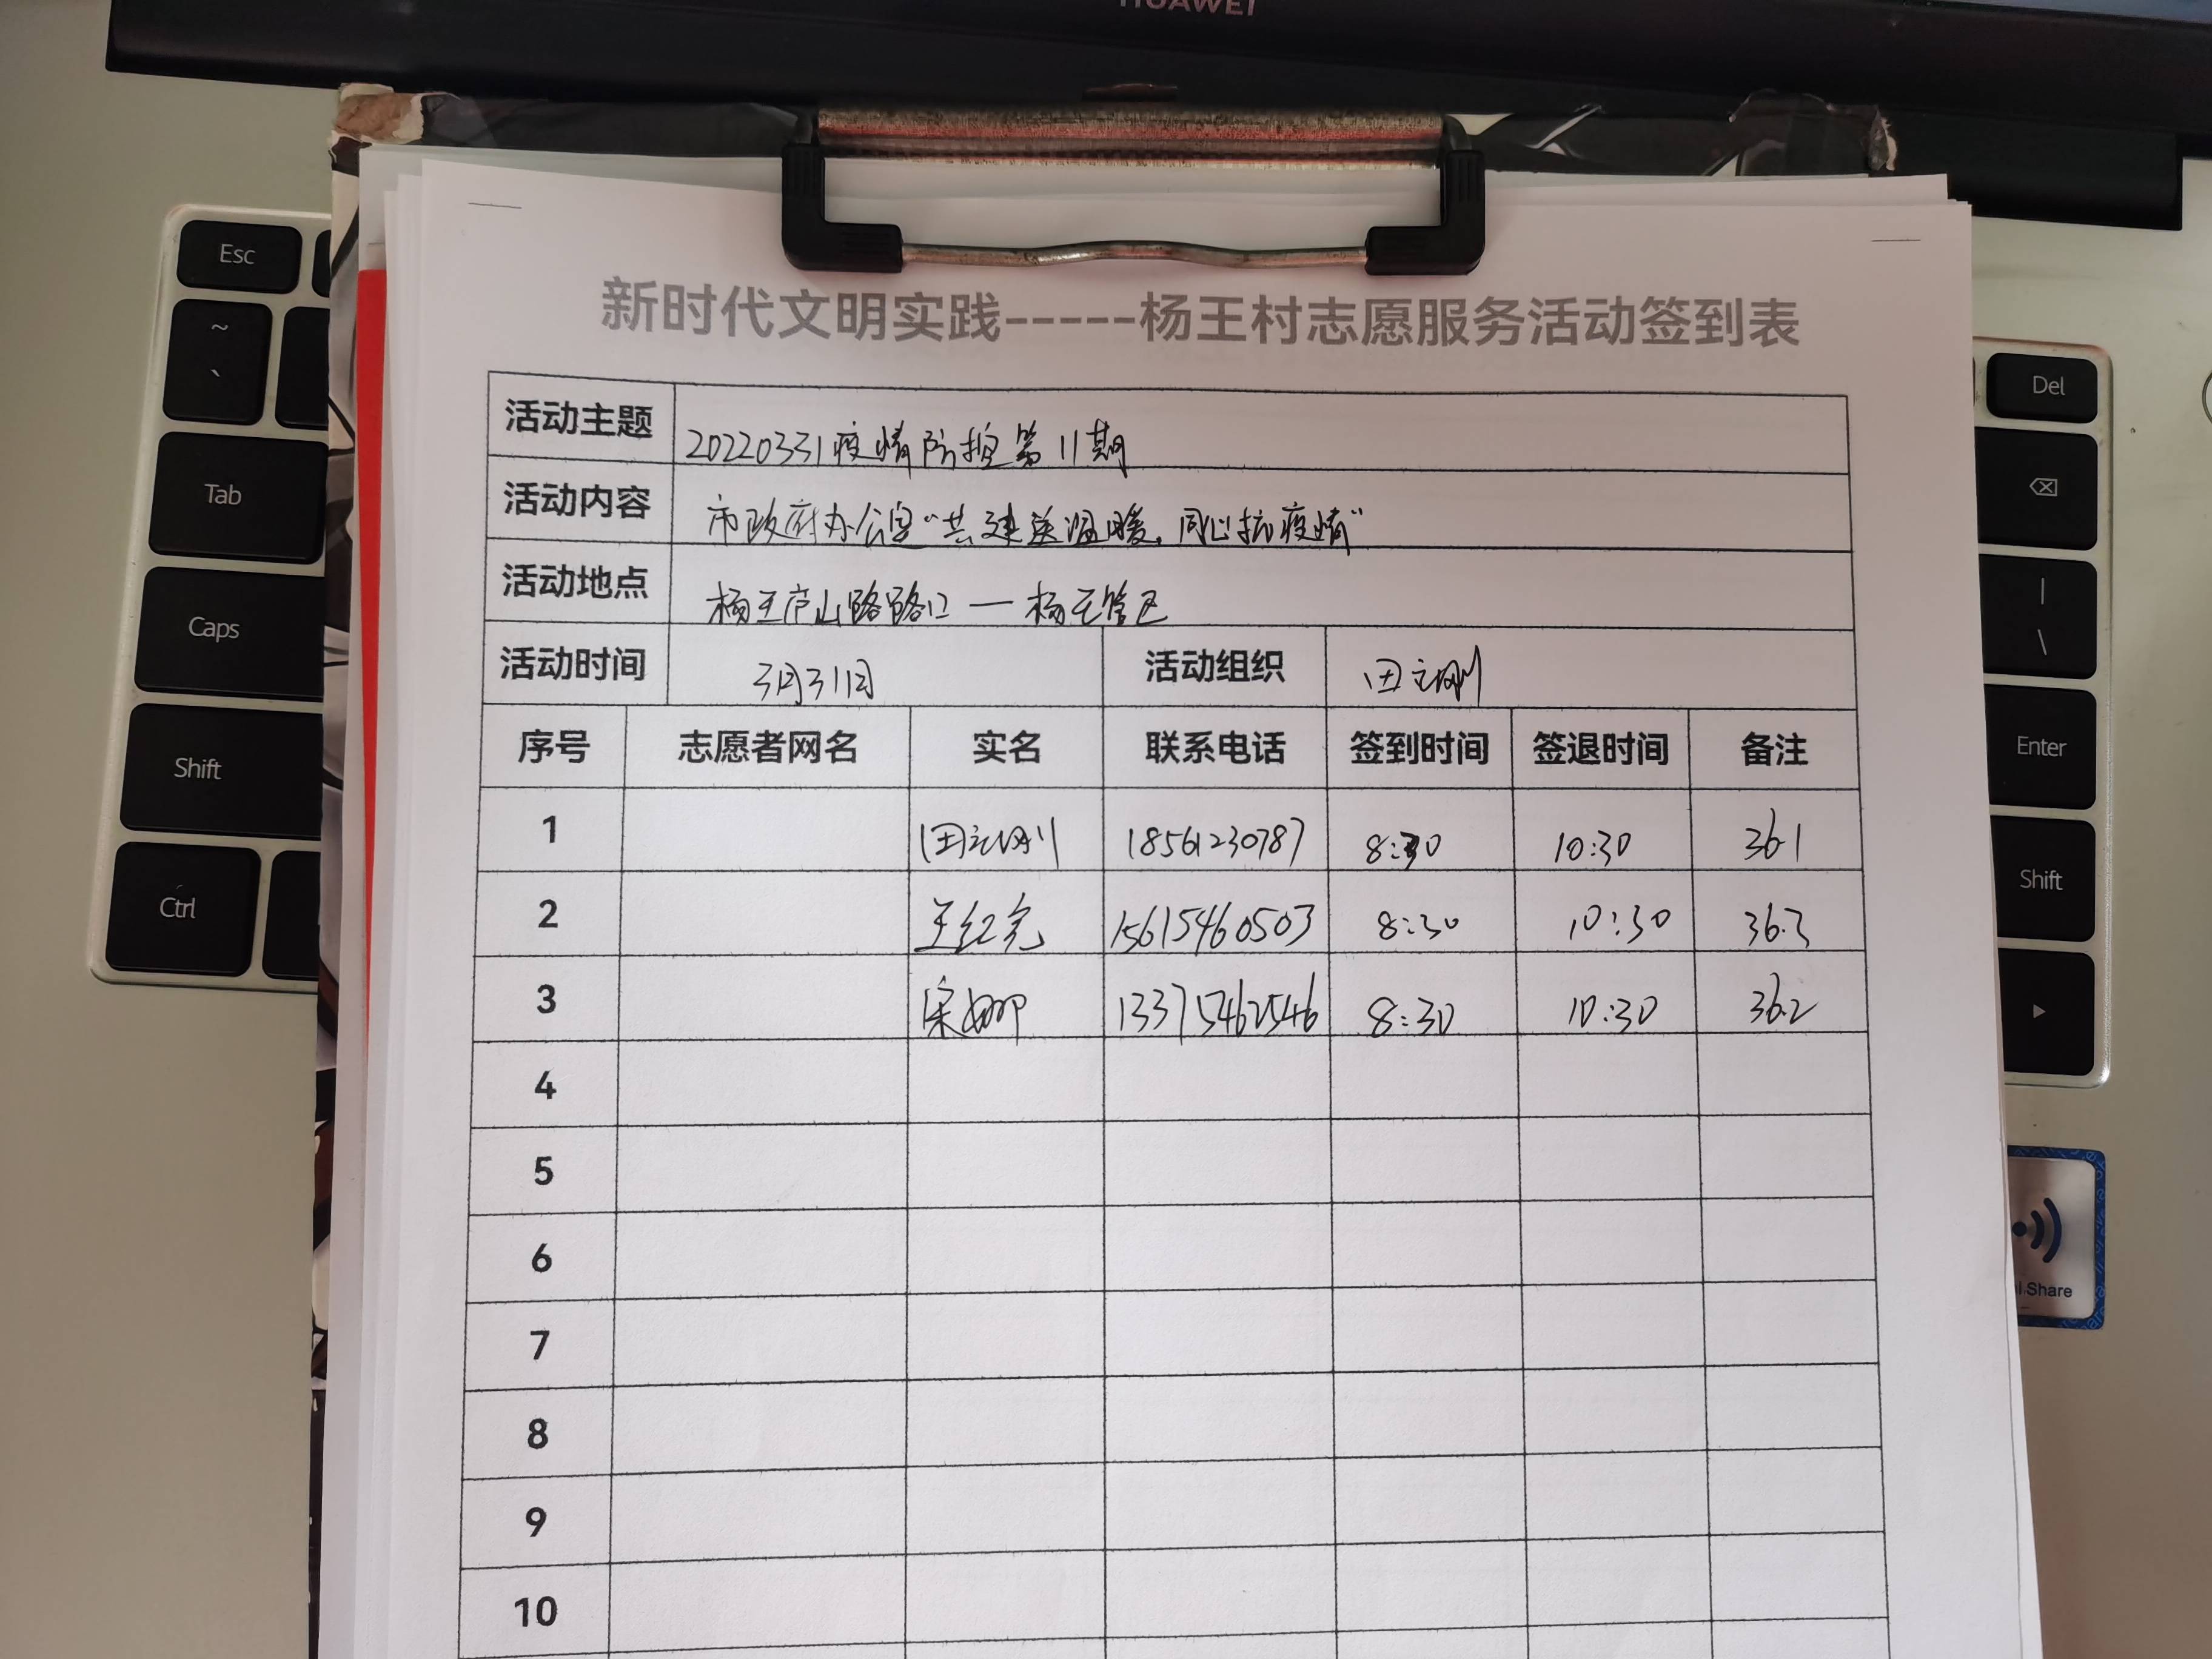 HUAWEI
Esc
~
、
Tab
Caps
Shift
Ctrl
Del
|
\
Enter
Shift
Share
新时代文明实践-----杨王村志愿服务活动签到表
活动主题 20220331疫情防控第11期
活动内容 市政府办公室"共建送温暖,同心抗疫情"
活动地点 杨王庐山路路口 — 杨王管区
活动时间 3月31日 活动组织 田立刚
序号 志愿者网名 实名 联系电话 签到时间 签退时间 备注
1 田立刚 18561230787 8:30 10:30 36.1
2 王红亮 15615460503 8:30 10:30 36.3
3 宋娜 13375462546 8:30 10:30 36.2
4
5
6
7
8
9
10